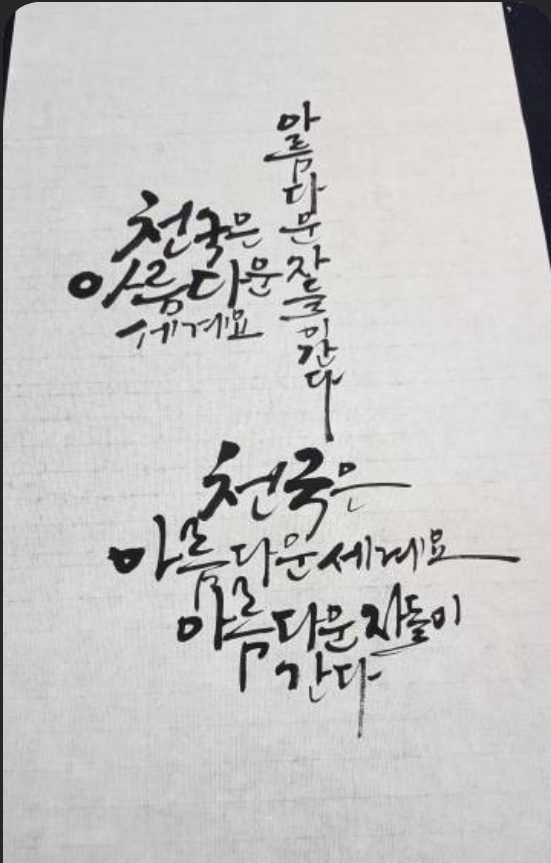 천국은
아름다운
세계요
아름다운 자들이 간다
천국은
아름다운세계요
아름다운 자들이
간다